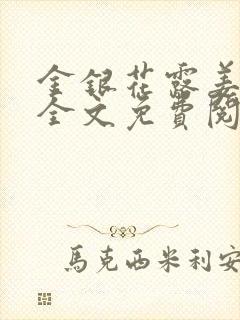 金銀花露姜
全文免費閱
馬克西米利安